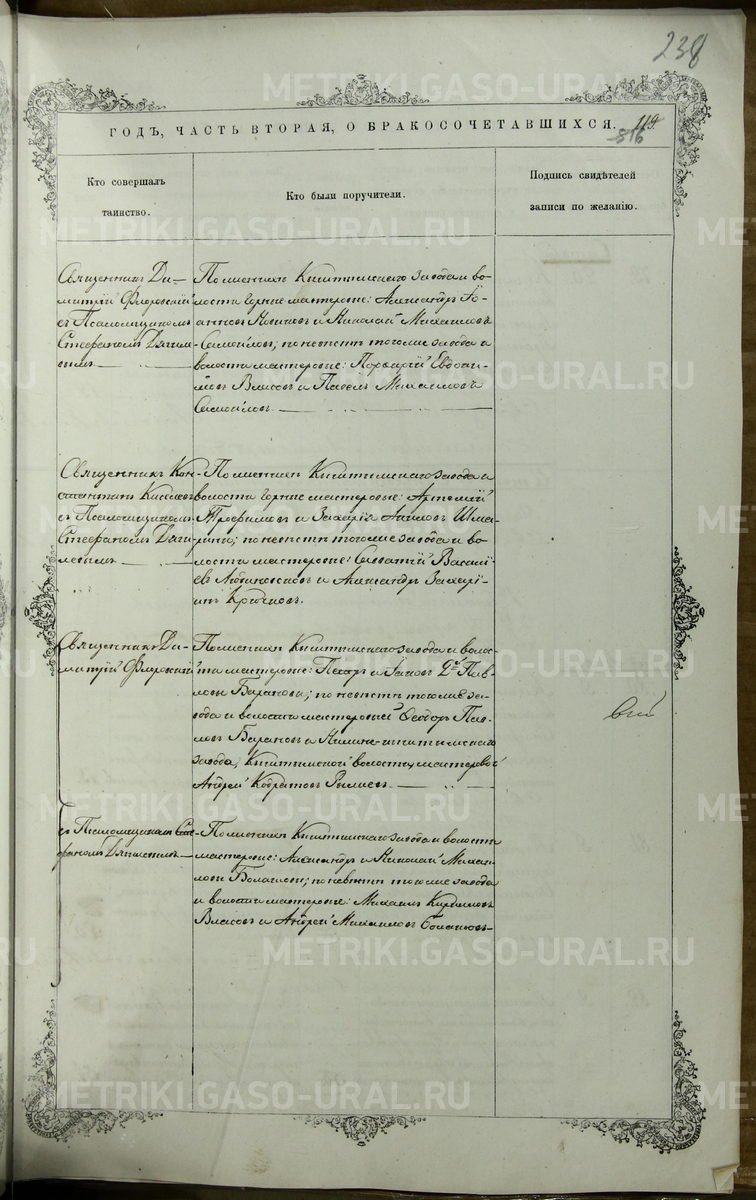 238
ГОДЪ, ЧАСТЬ ВТОРАЯ, О БРАКОСОЧЕТАВШИХСЯ. 119.
816
Кто совершалъ
таинство.
Кто были поручители.
Подпись свидѣтелей
записи по желанію.
Священникъ Ди-
митрій Флоровскій
съ Псаломщикомъ
Стефаномъ Дягиле-
вымъ.
По женихѣ Кыштымскаго завода и во-
лости горные мастеровые: Александръ Іо-
анновъ Новиковъ и Николай Михаиловъ
Самойловъ; по невѣстѣ того же завода и
волости мастеровые: Порфирій Евдоки-
мовъ Власовъ и Павелъ Михаиловъ
Самойловъ.
Священникъ Кон-
стантинъ Киселевъ
съ Псаломщикомъ
Стефаномъ Дяги-
левымъ
По женихѣ Кыштымскаго завода и
волости горные мастеровые: Артемій
Трофимовъ и Захарій
по невѣстѣ того же завода и во-
лости мастеровые: Савватій Василі-
евъ и Александръ Захарі-
инъ Крючковъ.
Священникъ Ди-
митрій Флоровскій
По женихѣ Кыштымскаго завода и волос-
ти мастеровые: Петръ и Іаковъ 2й Пав-
ловы Барановы; по невѣстѣ того же за-
вода и волости мастеровый Ѳеодоръ Пав-
ловъ Барановъ и Нижне-кыштымскаго
завода, Кыштымской волости, мастеровой
Андрей
вій
съ Псаломщикомъ Сте-
фаномъ Дягилевымъ
По женихѣ Кыштымскаго завода и волости
мастеровые: Александръ и Николай Михаи-
ловы; по невѣстѣ того же завода
и волости мастеровые: Михаилъ Кирилловъ
Власовъ и Андрей Михаиловъ
METRIKI.GASO-URAL.RU